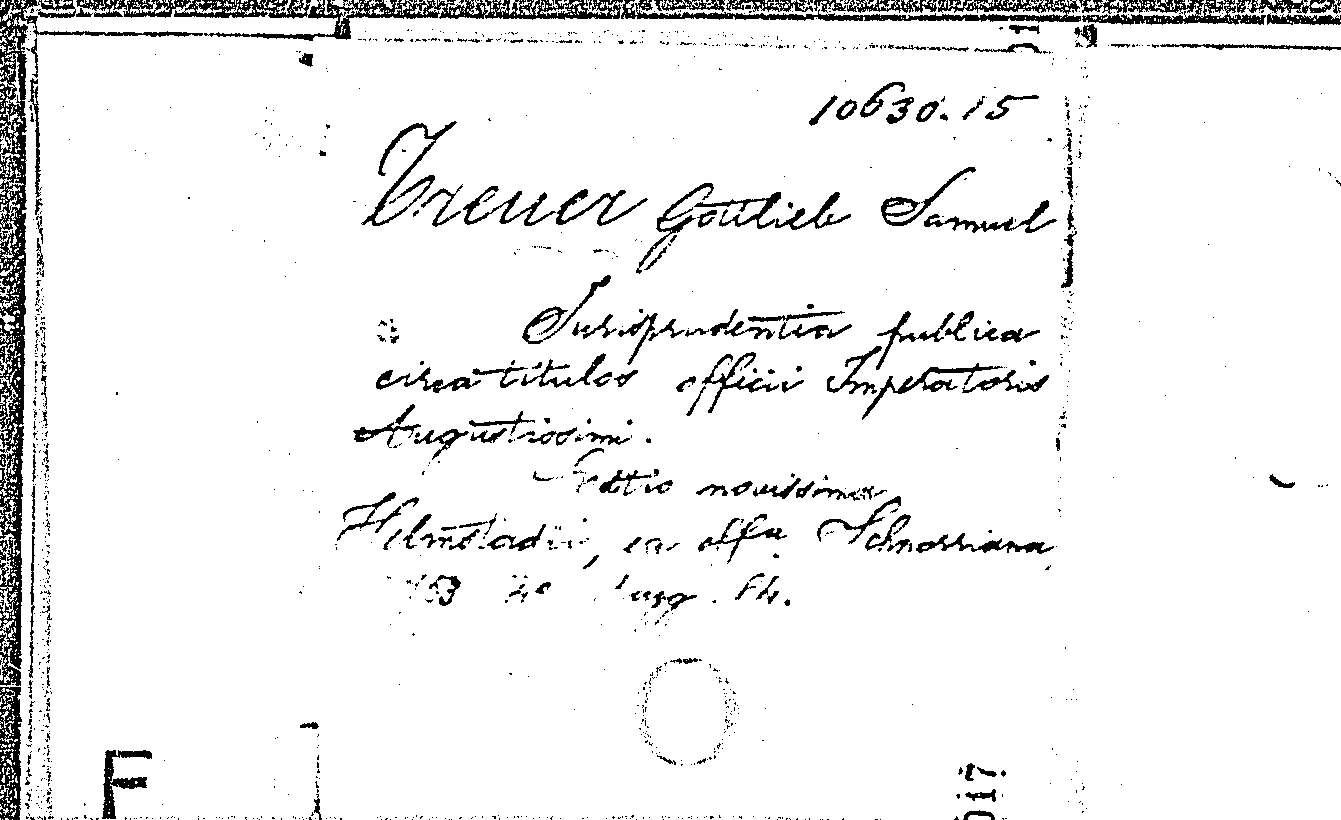 10630.15
Treuer Gottlieb Samuel
Jurisprudentia publica
circa titulos officii Imperatoris
Augustissimi.
Editio novissima
Helmstadii, ex offic. Schnorriana,
4°
F